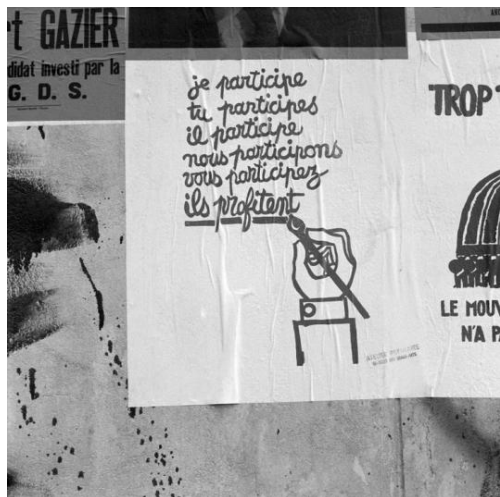 rt GAZIER
didat investi par la
G. D. S.
je participe
tu participes
il participe
nous participons
vous participez
ils profitent
TROP
LE MOUV
N'A PA